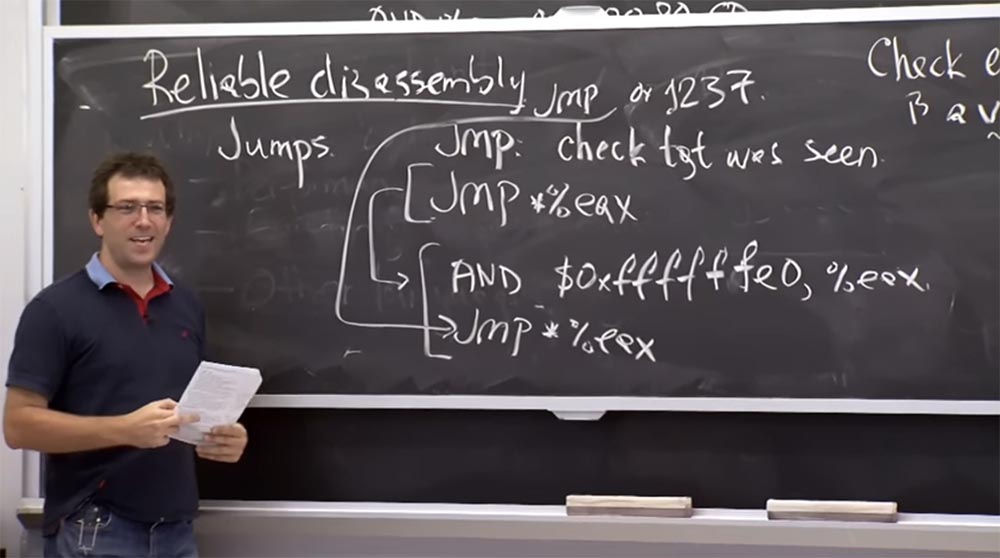 Reliable disassembly
JMP or 1237.
Check
Jumps.
JMP: check tgt was seen.
JMP *%eax
AND $0xffffffe0, %eax.
JMP *%eax